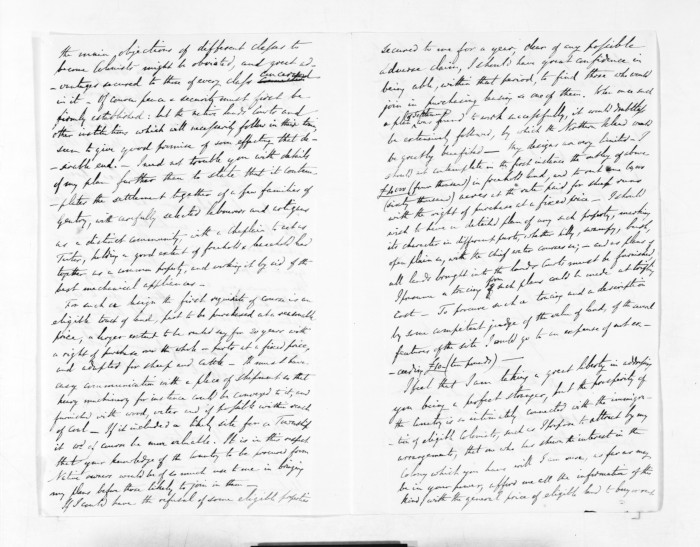 the main, objections of different classes to
become Colonists might be obviated, and great ad-
-vantages secured to those of every class concerned
in it - Of course peace & security must first be
firmly established: but the native lands Courts and
other institutions which will necessarily follow in their train,
seem to give good promise of soon effecting that de-
-sirable end. - I need not trouble you with details
of my plan further than to state that it contem-
-plates the settlement together of a few families of
gentry, with carefully selected labourers and artizans
as a district community, with a Chaplain to act as
Tutor, holding a good extent of freehold & leasehold land
together as a common property, and working it by aid of the
best mechanical appliances -
For such a design the first requisite of course is an
eligible tract of land, part to be purchased at a reasonable
price, a larger extent to be rented say for 20 years with
a right of purchase over the whole or parts at a fixed price,
and adapted for sheep and cattle - It must have
easy communication with a place of shipment so that
heavy machinery for instance could be conveyed to it, and
furnished with wood, water and if possible within reach
of coal - If it included a likely site for a Township
it wd of course be more valuable. It is in this respect
that your knowledge of the country to be procured from
Native owners would be of so much use to me in bringing
my plans before those likely to join in them -
If I could have the refusal of some eligible properties
secured to me for a year, clear of any possible
adverse claim, I should have great confidence in
being able, within that period, to find those who would
join in purchasing being as one of them. When once such
a plan was found to work successfully, it would doubtless
be extensively followed, by which the Northern Island would
be greatly benefited - My designs are very limited. I
should not contemplate in the first instance the outlay of above
(four thousand) in freehold land, and to rent
(sixty thousand) acres at the rate paid for sheep runs
with the right of purchase at a fixed price - I should
wish to have a detailed plan of any such property, marking
its character in different parts, whether hilly, swampy, bush,
open plain &c, with the chief water courses &c; - and as plans of
all lands brought into the lands Courts must be furnished
I presume a tracing from such plans could be made at trifling
cost - To procure such a tracing and a description
by some competent judge of the value of land, of the several
features of the site I would go to an expense of not ex-
-ceeding £10 (ten pounds) -
I feel that I am taking a great liberty in addressing
you being a perfect stranger, but the prosperity of
the Country is so intimately connected with the immigra-
-tion of eligible Colonists, such as I hope to attract by my
arrangements, that one who has shown the interest in the
Colony which you have will I am sure, as far as may
be in your power, afford me all the information of the
kind, with the general price of eligible land to buy or rent